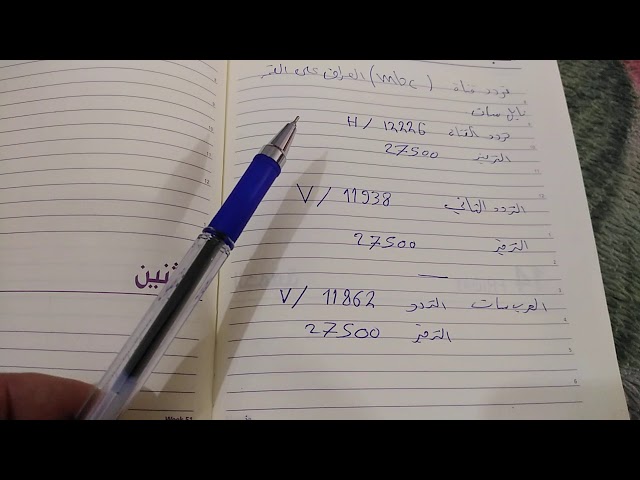 تردد قناة (mbc) العراق على القمر
نايل سات
تردد القناة 12226 / H
الترميز 27500
التردد الثاني 11938 / V
الترميز 27500
العرب سات التردد 11862 / V
الترميز 27500
ثنين
Week 51